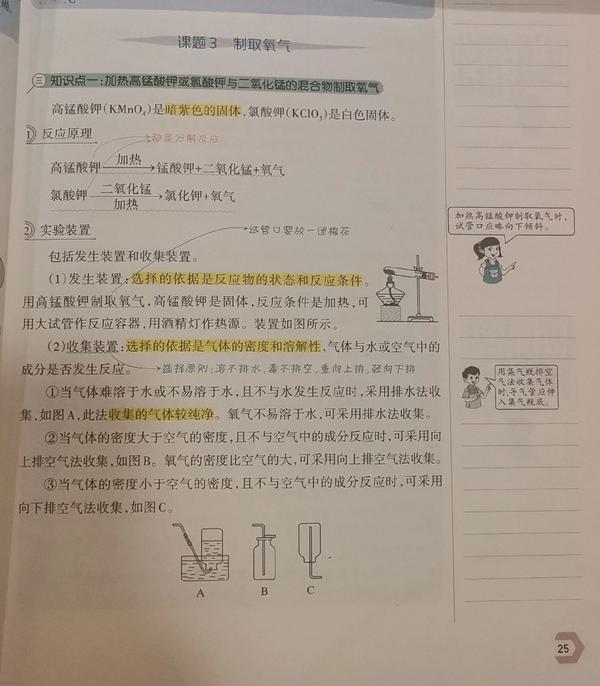 课题3 制取氧气
三 知识点一:加热高锰酸钾或氯酸钾与二氧化锰的混合物制取氧气
高锰酸钾(KMnO₄)是暗紫色的固体,氯酸钾(KClO₃)是白色固体。
1 反应原理
都是分解反应
高锰酸钾 加热 锰酸钾+二氧化锰+氧气
氯酸钾 二氧化锰 加热 氯化钾+氧气
2 实验装置
试管口要放一团棉花
包括发生装置和收集装置。
(1)发生装置:选择的依据是反应物的状态和反应条件。
用高锰酸钾制取氧气,高锰酸钾是固体,反应条件是加热,可
用大试管作反应容器,用酒精灯作热源。装置如图所示。
(2)收集装置:选择的依据是气体的密度和溶解性,气体与水或空气中的
成分是否发生反应。
选择原则:溶不排水,毒不排空,重向上排,轻向下排
①当气体难溶于水或不易溶于水,且不与水发生反应时,采用排水法收
集,如图A,此法收集的气体较纯净。氧气不易溶于水,可采用排水法收集。
②当气体的密度大于空气的密度,且不与空气中的成分反应时,可采用向
上排空气法收集,如图B。氧气的密度比空气的大,可采用向上排空气法收集。
③当气体的密度小于空气的密度,且不与空气中的成分反应时,可采用
向下排空气法收集,如图C。
A B C
加热高锰酸钾制取氧气时,
试管口应略向下倾斜。
用集气瓶排空
气法收集气体
时,导气管应伸
入集气瓶底。
25